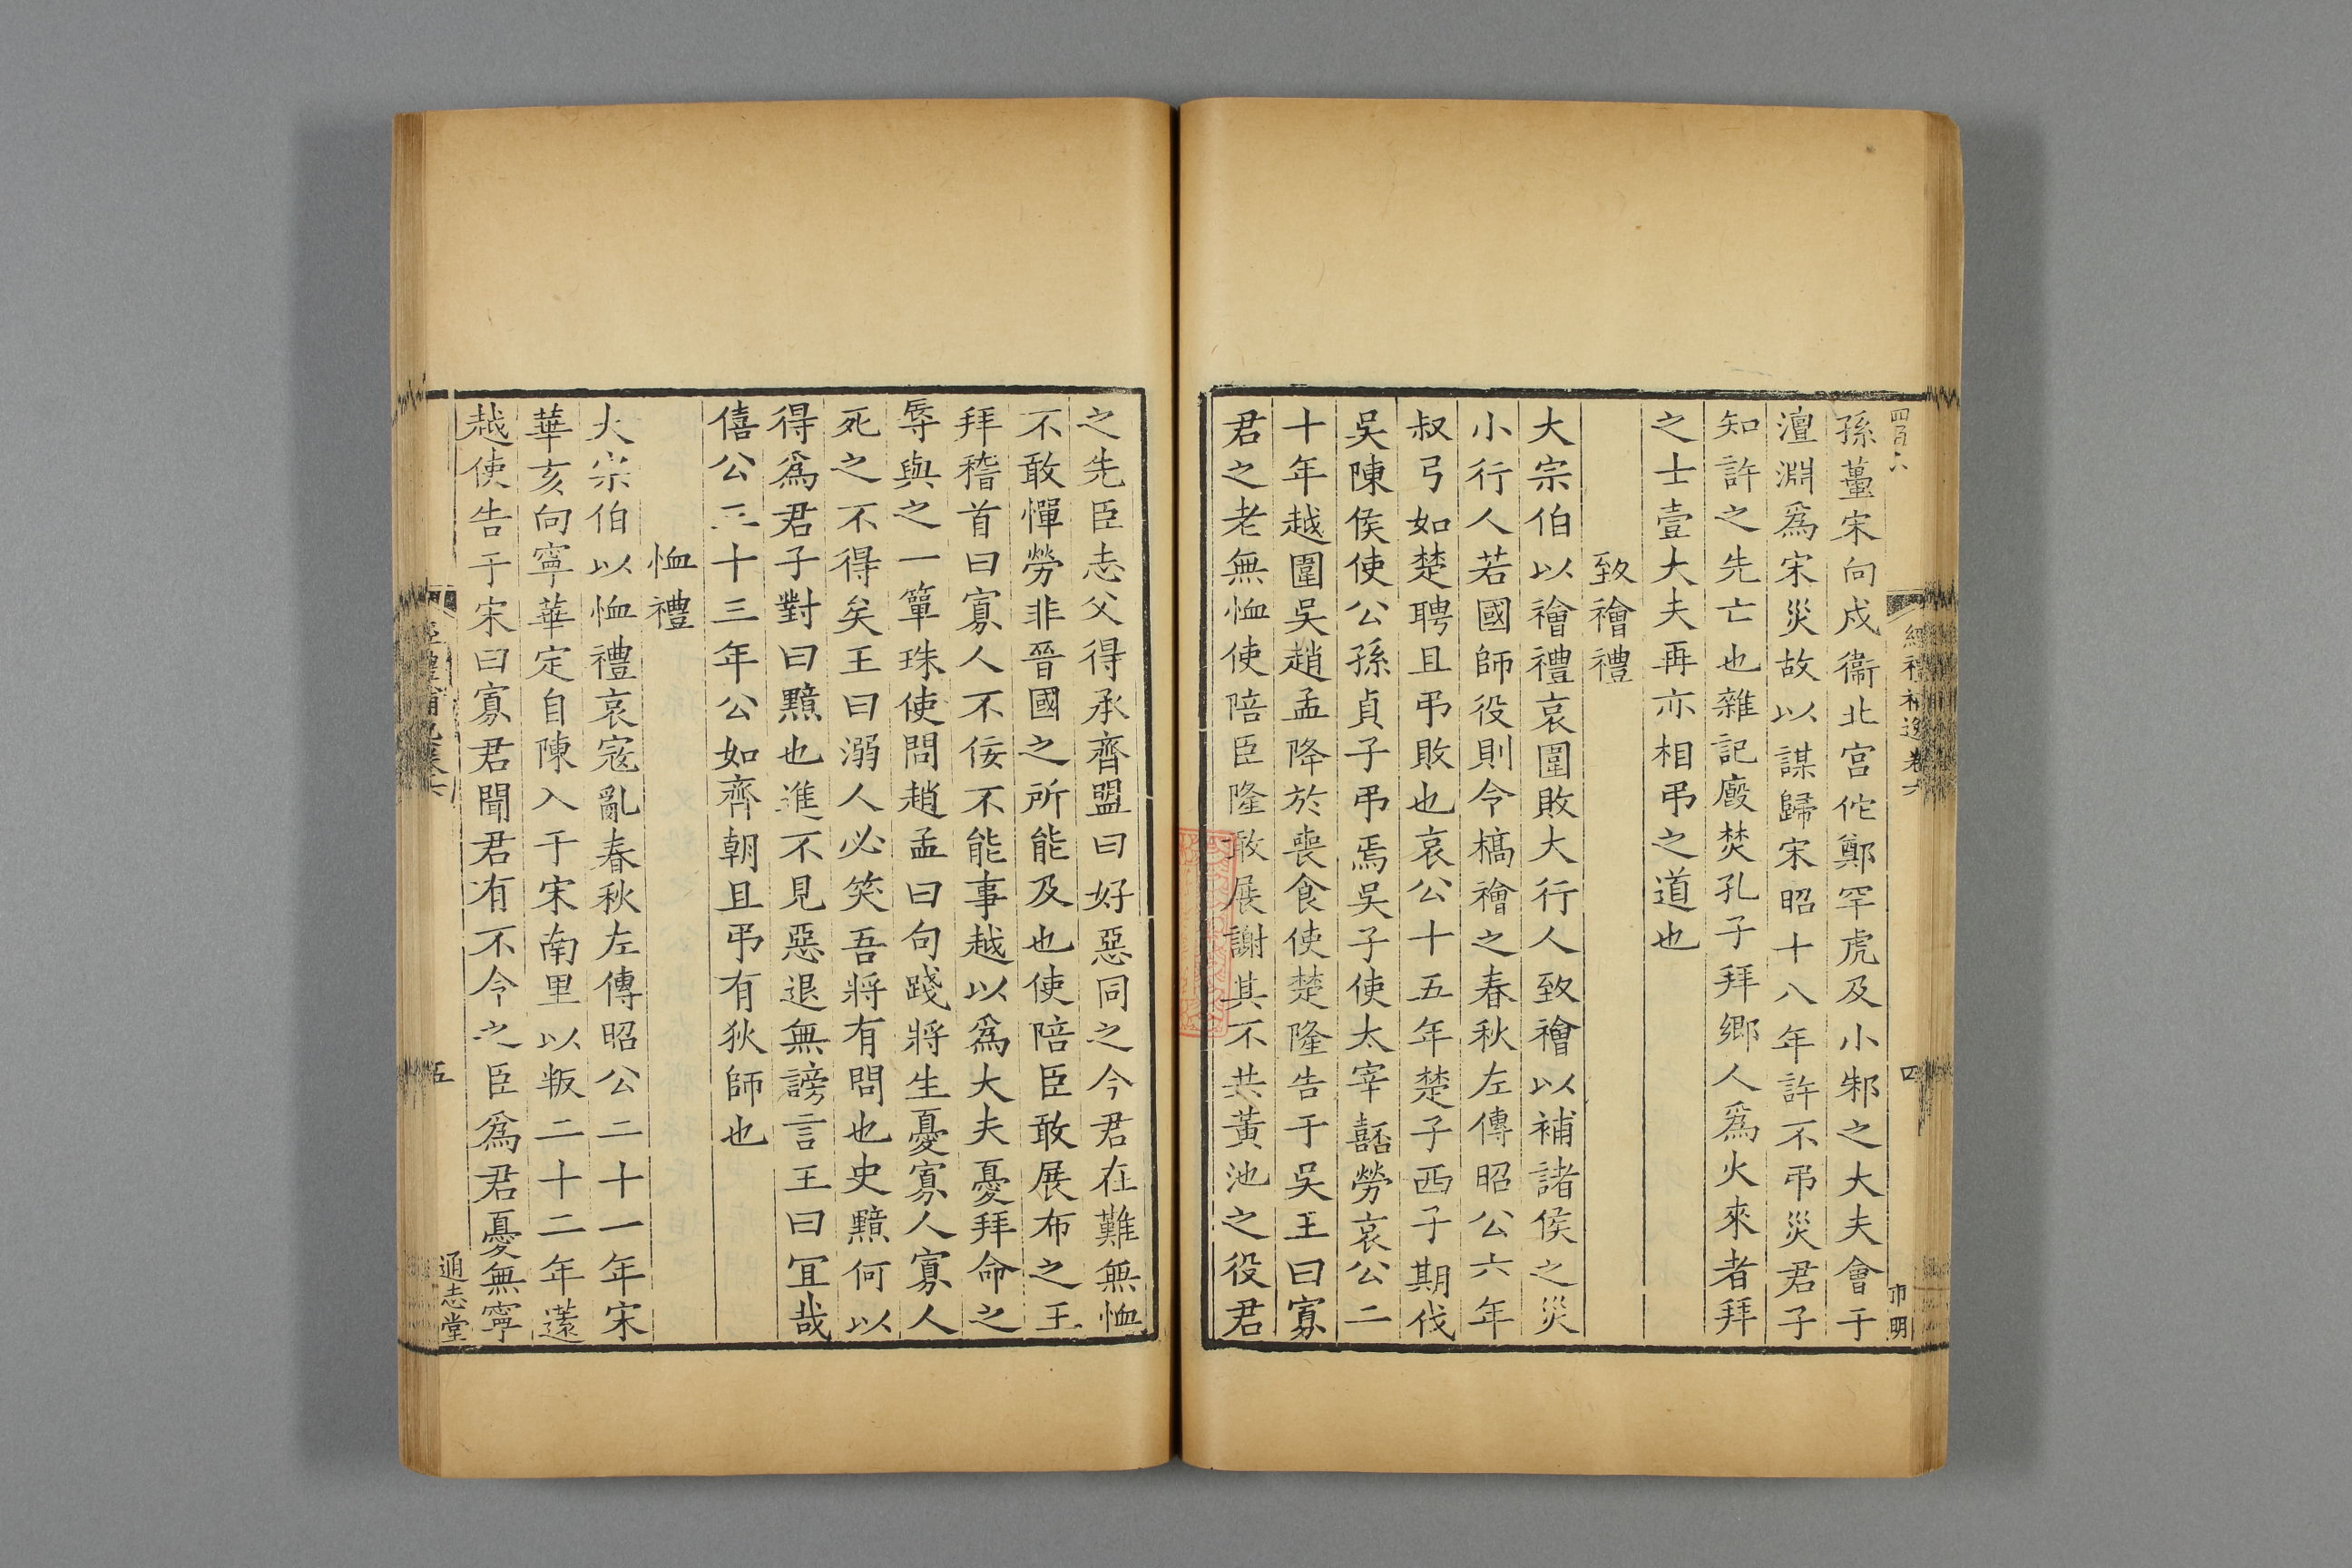 四百六
經禮補逸卷六
四
市明
孫蠆宋向戌衞北宮佗鄭罕虎及小邾之大夫會于
澶淵爲宋災故以謀歸宋昭十八年許不弔災君子
知許之先亡也雜記廏焚孔子拜鄉人爲火來者拜
之士壹大夫再亦相弔之道也
致禬禮
大宗伯以禬禮哀圍敗大行人致禬以補諸侯之災
小行人若國師役則令槁禬之春秋左傳昭公六年
叔弓如楚聘且弔敗也哀公十五年楚子西子期伐
吳陳侯使公孫貞子弔焉吳子使太宰嚭勞哀公二
十年越圍吳趙孟降於喪食使楚隆告于吳王曰寡
君之老無恤使陪臣隆敢展謝其不共黃池之役君
之先臣志父得承齊盟曰好惡同之今君在難無恤
不敢憚勞非晉國之所能及也使陪臣敢展布之王
拜稽首曰寡人不佞不能事越以爲大夫憂拜命之
辱與之一簞珠使問趙孟曰句踐將生憂寡人寡人
死之不得矣王曰溺人必笑吾將有問也史黯何以
得爲君子對曰黯也進不見惡退無謗言王曰宜哉
僖公三十三年公如齊朝且弔有狄師也
恤禮
大宗伯以恤禮哀寇亂春秋左傳昭公二十一年宋
華亥向寧華定自陳入于宋南里以叛二十二年薳
越使告于宋曰寡君聞君有不令之臣爲君憂無寧
五
通志堂